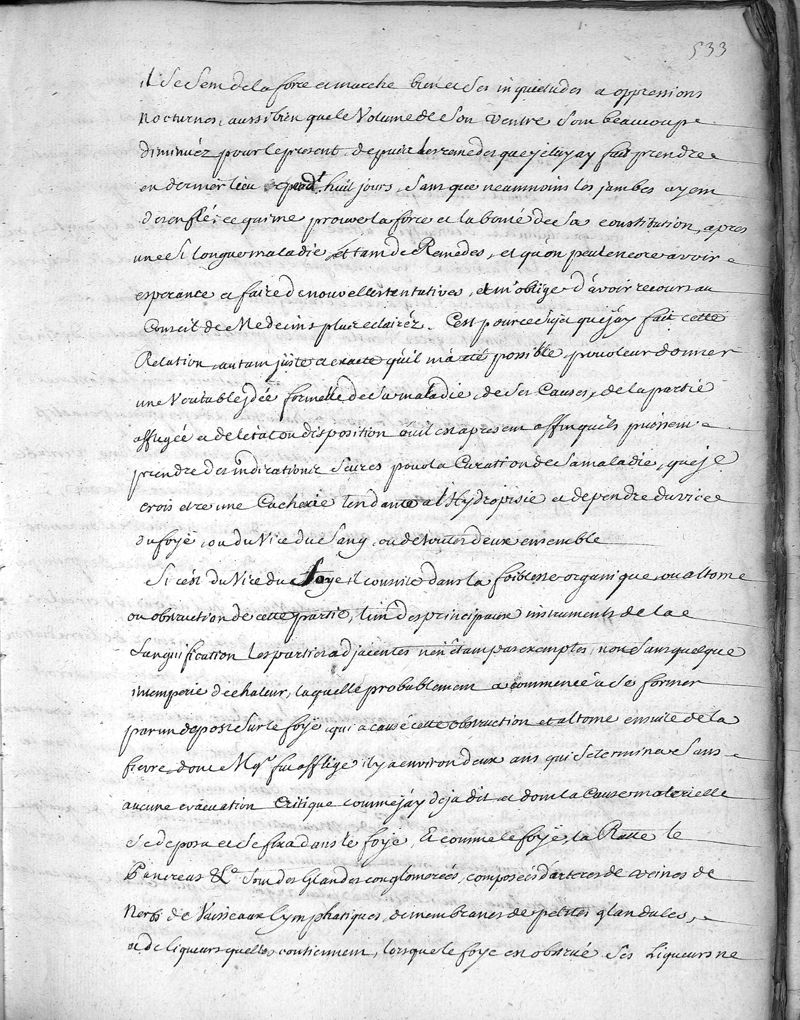 533
il se sent de la force et marche bien et ses inquietudes et oppressions
nocturnes, aussi bien que le Volume de son ventre sont beaucoup
diminuéz pour le present, depuis les remedes que je luy ay fait prendre
en dernier lieu pendt. huit jours, sans que neanmoins les jambes ayent
desenflé; ce qui me prouve la force et la bonté de sa constitution, apres
une si longue maladie et tant de Remedes, et qu'on peut encore avoir
esperance et faire de nouvelles tentatives, et m'oblige d'avoir recours au
Conseil de Medecins plus eclairéz. C'est pource sujet que j'ay fait cette
Relation autant juste et exacte qu'il m'a eté possible, pour leur donner
une Veritable jdée formelle de sa maladie, de ses Causes, de la partie
affligée et de l'etat ou disposition où il en a present affin qu'ils puissent
prendre des indications seures pour la Curation de sa maladie, que je
crois etre une Cachexie tendante a l'Hydropisie et dependre du vice
du foye, ou du Vice du Sang, ou de toutes deux ensemble
Si c'est du Vice du foye il consiste dans la foiblesse organique, ou altome
ou obstruction de cette partie, l'un des principaux instruments de la
Sanguification les parties adjacentes n'en étant pas exemptes, non sans quelque
intemperie de chaleur, laquelle probablement a commencé a se former
par un depost sur le foye, qui a causé cette obstruction et altome ensuite de la
fievre, donc Mgr. fut affligé il y a environ deux ans qui se termina sans
aucune evacuation Critique comme j'ay deja dit et dont la Cause materielle
se deposa et se fixa dans le foye, Et comme le foye, la Ratte le
Pancreas &c. sont des Glandes conglomerées, composées d'arteres de veines de
Nerfs de Vaisseaux lymphatiques, de membranes de petites glandules,
et de liqueurs qu'elles contiennent, lorsque le foye en obstrué ses Liqueurs ne